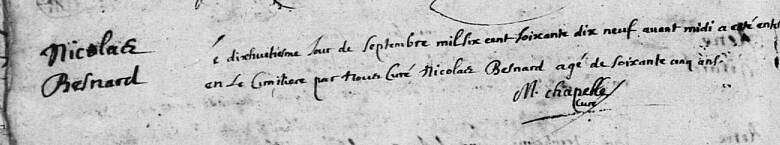 Nicolas
Besnard
Le dixhuitiesme Jour de Septembre mil six cent soixante dix neuf avant midi a esté
en Le Cimitiere par Nous Curé Nicolas Besnard agé de soixante cinq ans
M. Chapelle
Curé